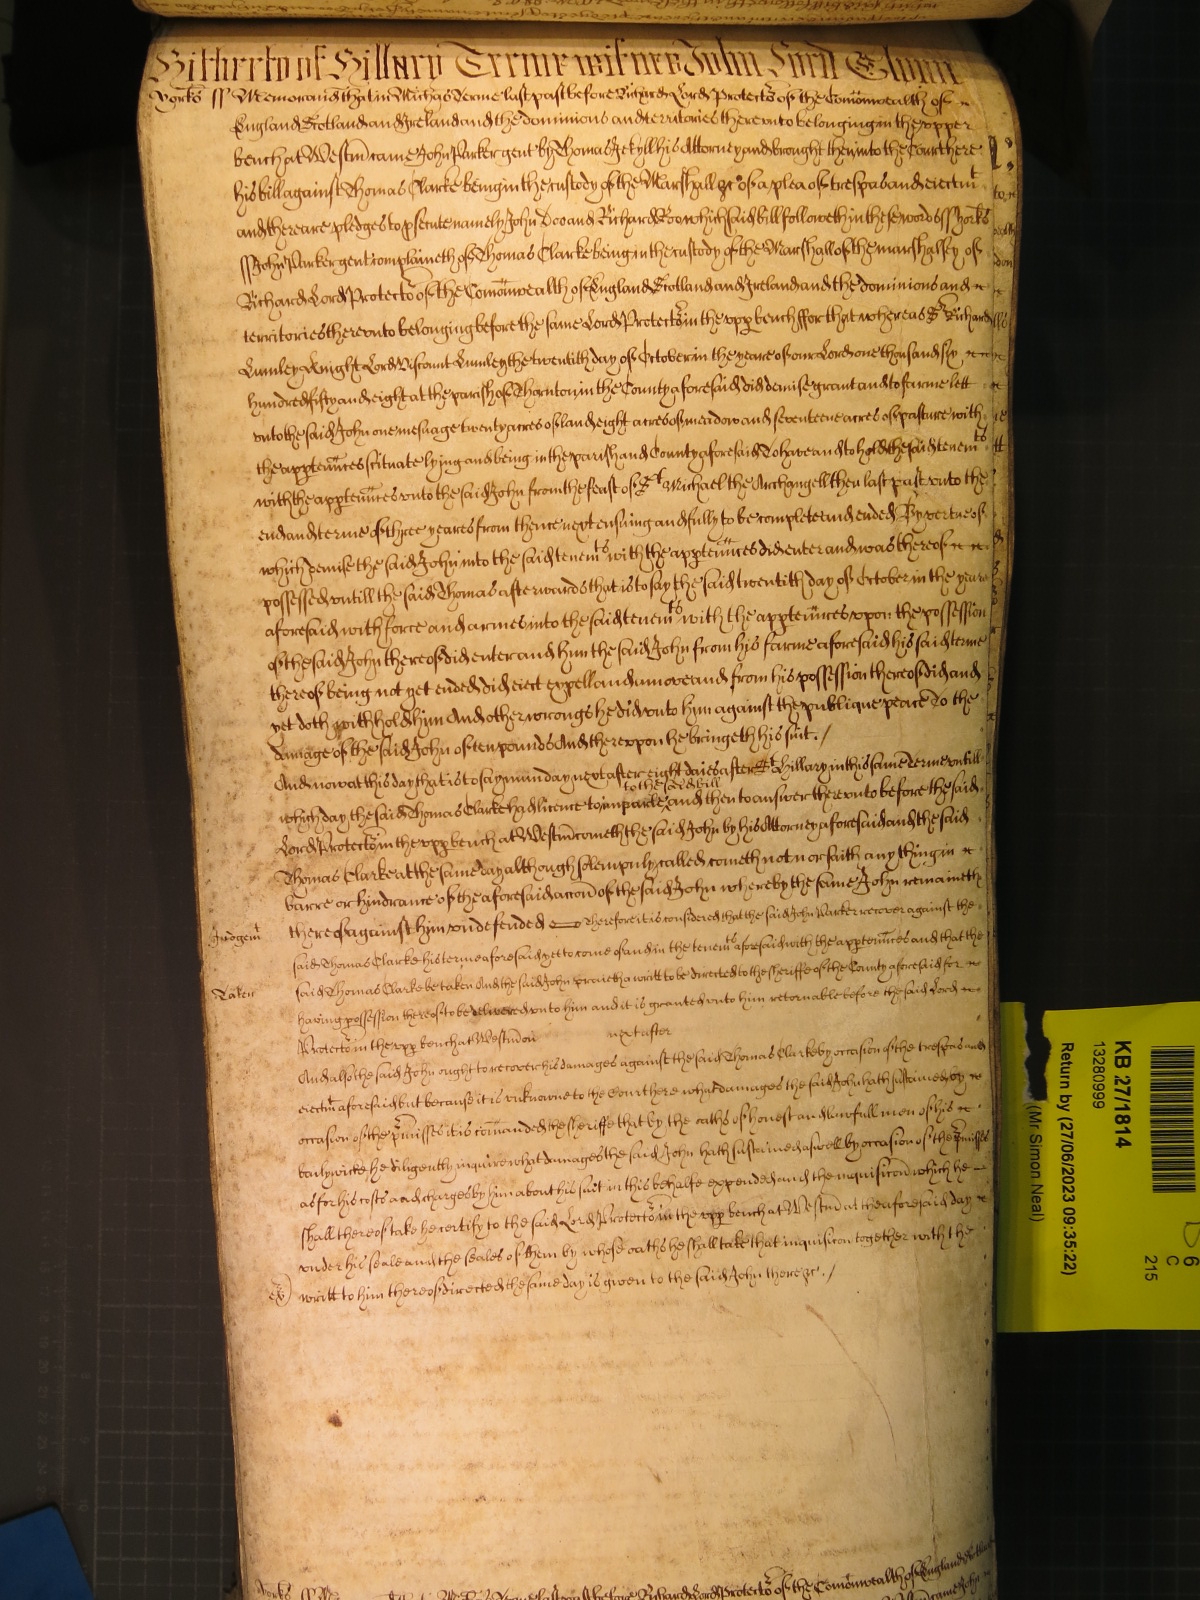 Hitherto of Hillary Terme witnes John Lord Glynn
Yorks ss Memorand that in Michas Terme last past before Richard Lord Protector of the Comonwealth of
England Scotland and Ireland and the dominions and territories thereunto belonging in the upper
bench at Westm came John Parker gent by Thomas Jekyll his Attorney and brought then into the Court here
his bill against Thomas Clarke being in the custody of the Marshall &c of a plea of trespas and eiectmt
and there are pledges to psecute namely John Doo and Richard Roo which said bill followeth in these words ss Yorks
ss John Parker gent complaineth of Thomas Clarke being in the custody of the Marshall of the marshalsey of
Richard Lord Protector of the Comonwealth of England Scotland and Ireland and the dominions and
territories thereunto belonging before the same Lord Protector in the upp bench ffor that whereas Sr Richard
Lumley Knight Lord Viscount Lumley the twentith day of October in the yeare of our Lord one thousand six
hundred fifty and eight at the parish of Thornton in the County aforesaid did demise grant and to farme lett
unto the said John one mesuage twenty acres of land eight acres of meadow and seventeene acres of pasture with
the apptennces scituate lying and being in the parish and County aforesaid To have and to hold the said tenemts
with the apptennces unto the said John from the feast of St Michael the Archangell then last past unto the
end and terme of three yeares from thence next ensuing and fully to be compleate and ended By vertue of
which demise the said John into the said tenemts with the apptennces did enter and was thereof
possessed untill the said Thomas afterwards that is to say the said twentith day of October in the yeare
aforesaid with force and armes into the said tenemts with the apptennces upon the possession
of the said John thereof did enter and him the said John from his farme aforesaid his said terme
thereof being not yet ended did eiect expell and amove and from his possession thereof did and
yet doth withhold him And other wrongs he did unto him against the publique peace To the
damage of the said John of ten pounds And thereupon he bringeth his suit. /
And now at this day that is to say munday next after eight daies after St Hillary in this same terme untill
to the said bill
which day the said Thomas Clarke had licence to imparle and then to answer thereunto before the said
Lord Protector in the upp bench at Westm cometh the said John by his Attorney aforesaid and the said
Thomas Clarke at the same day although solempnly called cometh not nor saith any thing in
barre or hindrance of the aforesaid accon of the said John whereby the same John remaineth
thereof against him undefended Therefore it is considered that the said John Parker recover against the
Judgemt
said Thomas Clarke his terme aforesaid yet to come of and in the tenemts aforesaid with the apptennces and that the
said Thomas Clarke be taken And the said John praieth a writt to be directed to the Sheriffe of the County aforesaid for
Taken
having possession thereof to be delivered unto him and it is granted unto him retornable before the said Lord
Protector in the upp bench at Westm on next after
And also the said John ought to recover his damages against the said Thomas Clarke by occasion of the trespas and
eiectmt aforesaid but because it is unknowne to the Court here what damages the said John hath sustained by
occasion of the pmisses it is comanded the Sheriffe that by the oaths of honest and lawfull men of his
bailywicke he diligently inquire what damages the said John hath sustained aswell by occasion of the pmisses
as for his costs and charges by him about his suit in this behalfe expended and the inquisicon which he
shall thereof take he certify to the said Lord Protector in the upp bench at Westm at the aforesaid day
under his seale and the seales of them by whose oaths he shall take that inquisicon together with the
writt to him thereof directed the same day is given to the said John there &c. /
Richard Lord Protector of the Comonwealth of England
KB 27/1814
13280999
Return by (27/06/2023 09:35:22)
(Mr Simon Neal)
6
C
215